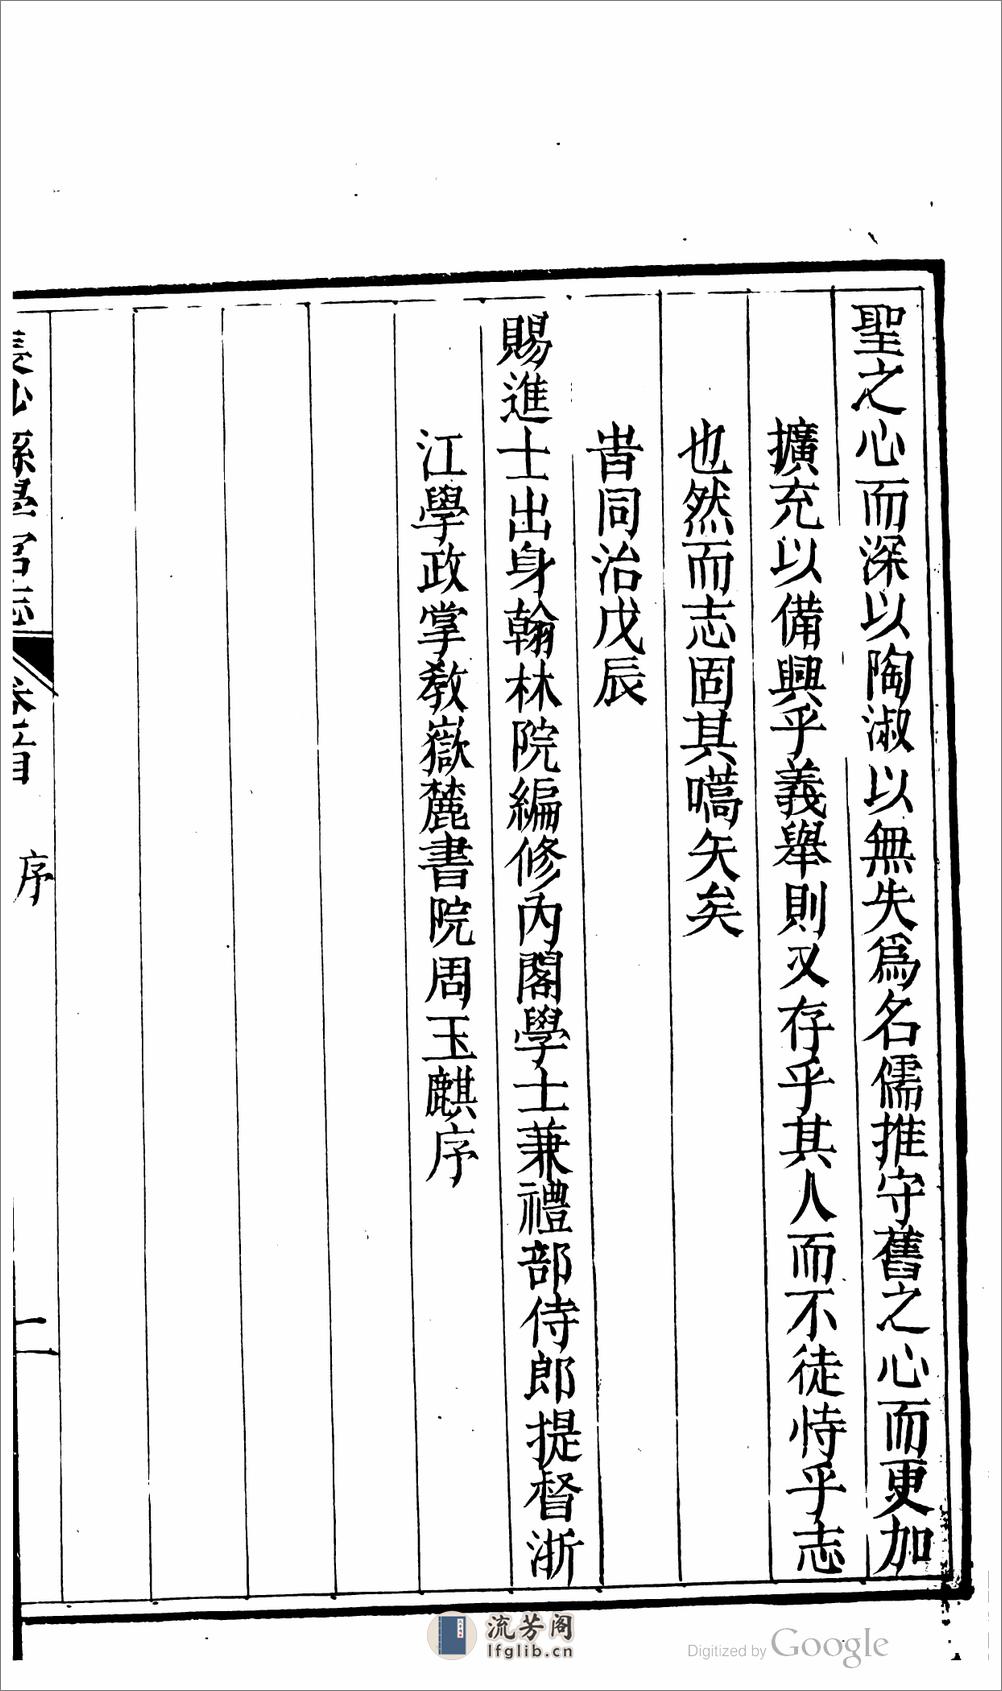 聖之心而深以陶淑以無失爲名儒推守舊之心而更加
擴充以備興乎義舉則又存乎其人而不徒恃乎志
也然而志固其嚆矢矣
旹同治戊辰
賜進士出身翰林院編修內閣學士兼禮部侍郎提督浙
江學政掌教嶽麓書院周玉麒序
長沙縣學宮志 卷首 序 二
流芳阁
lfglib.cn
Digitized by Google